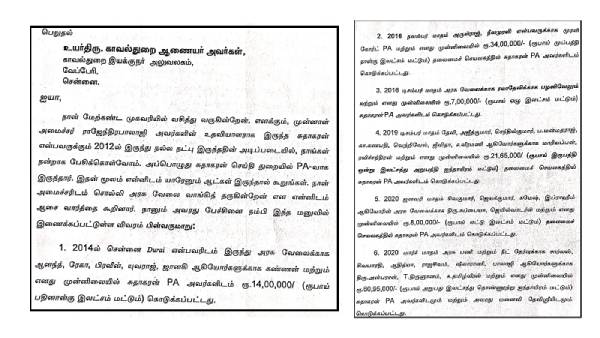 பெறுதல்
உயர்திரு. காவல்துறை ஆணையர் அவர்கள்,
காவல்துறை இயக்குநர் அலுவலகம்,
வேப்பேரி,
சென்னை.
ஐயா,
நான் மேற்கண்ட முகவரியில் வசித்து வருகின்றேன். எனக்கும், முன்னாள்
அமைச்சர் ராஜேந்திரபாலாஜி அவர்களின் உதவியாளராக இருந்த சுதாகரன்
என்பவருக்கும் 2012ல் இருந்து நல்ல நட்பு இருந்ததின் அடிப்படையில், நாங்கள்
நன்றாக பேசிக்கொள்வோம். அப்பொழுது சுதாகரன் செய்தி துறையில் PA-வாக
இருந்தார். இதன் மூலம் என்னிடம் யாரேனும் ஆட்கள் இருந்தால் கூறுங்கள். நான்
அமைச்சரிடம் சொல்லி அரசு வேலை வாங்கித் தருகின்றேன் என என்னிடம்
ஆசை வார்த்தை கூறினார். நானும் அவரது பேச்சினை நம்பி இந்த மனுவில்
இணைக்கப்பட்டுள்ள விவரம் பின்வருமாறு:
1. 2014ல் சென்னை Durai என்பவரிடம் இருந்து அரசு வேலைக்காக
ஆனந்த், ரேகா, பிரவீன், யுவராஜ், ஜானகி ஆகியோர்களுக்காக கண்ணன் மற்றும்
எனது முன்னிலையில் சுதாகரன் PA அவர்களிடம் ரூ.14,00,000/ (ரூபாய்
பதினான்கு இலட்சம் மட்டும்) கொடுக்கப்பட்டது.
2. 2016 நவம்பர் மாதம் அருள்ராஜ், நீலமுரளி என்பவருக்காக முரளி
கோர்ட் PA மற்றும் எனது முன்னிலையில் ரூ.34,00,000/- (ரூபாய் முப்பத்தி
நான்கு இலட்சம் மட்டும்) தலைமைச் செயலகத்தில் சுதாகரன் PA அவர்களிடம்
கொடுக்கப்பட்டது.
3. 2016 டிசம்பர் மாதம் அரசு வேலைக்காக ரமாதேவிக்காக பழனிவேலும்
மற்றும் எனது முன்னிலையில் ரூ.7,00,000/- (ரூபாய் ஏழு இலட்சம் மட்டும்)
சுதாகரன் PA அவர்களிடம் கொடுக்கப்பட்டது.
4. 2019 டிசம்பர் மாதம் தேவி, அஜீத்குமார், செந்தில்குமார்,
ஆகியோர்களுக்காக மாரியப்பன்,
ரவிச்சந்திரன் மற்றும் எனது முன்னிலையில் ரூ.21,65,000/- (ரூபாய் இருபத்தி
ஒன்று இலட்சத்து அறுபத்தி ஐந்தாயிரம் மட்டும்) தலைமைச் செயலகத்தில்
சுதாகரன் PA அவர்களிடம் கொடுக்கப்பட்டது.
5. 2020 ஜனவரி மாதம் சிவகுமார், ஜெயக்குமார், இப்ராஹீம்
ஆகியோரின் அரசு வேலைக்காக மற்றும் எனது
முன்னிலையில் ரூ.8,00,000/- (ரூபாய் எட்டு இலட்சம் மட்டும்) தலைமைச்
செயலகத்தில் சுதாகரன் PA அவர்களிடம் கொடுக்கப்பட்டது.
6. 2020 மார்ச் மாதம் அரசு பணி மற்றும் நீட் தேர்வுக்காக
சிவபாரதி, ஆதித்யா, ராஜசிவம், பாலாஜி ஆகியோர்களுக்காக
திரு.அன்பரசன், மற்றும் எனது முன்னிலையில்
ரூ.60,95,000/- (ரூபாய் அறுபது இலட்சத்து தொண்ணூற்று ஐந்தாயிரம் மட்டும்)
சுதாகரன் PA அவர்களிடமும் மற்றும் அவரது மனைவி தேவிஸ்ரீயிடமும்
கொடுக்கப்பட்டது.